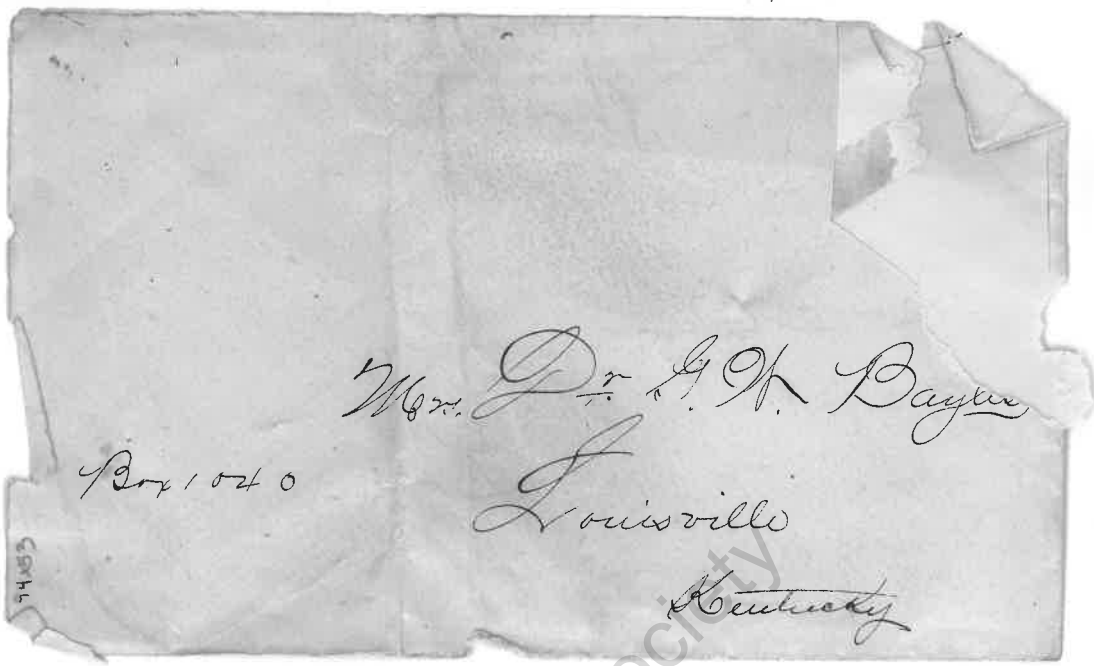 Mrs. Dr. G. W. Bayles
Box 1040
Louisville
Kentucky
ociety